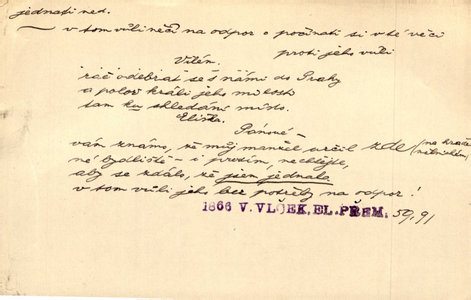 jednati než.
— v tom vůli něčí na odpor o počínati si v té věci
proti jeho vuli
Vilém.
ráč odebrat se s námi do Prahy
a polož králi jeho milosti
tam ku skládání místo.
Eliška.
Pánové —
vám známo, že můj manžel určil zde (na hradě
né bydliště — i prosím, nechtějte,
aby se zdálo, že jsem jednala
v tom vůli jeho bez potřeby na odpor!
1866 V. VLČEK, EL. PŘEM. 50, 91